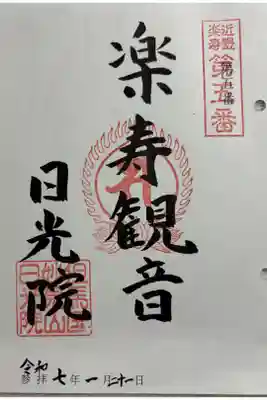 楽寿観音
日光院
第五番
令和
参拝 七年一月二十一日